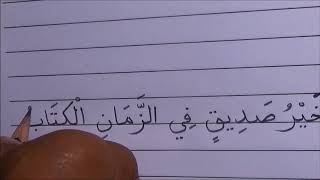 خَيْرُ صَدِيقٍ فِي الزَّمَانِ الْكتَابُ